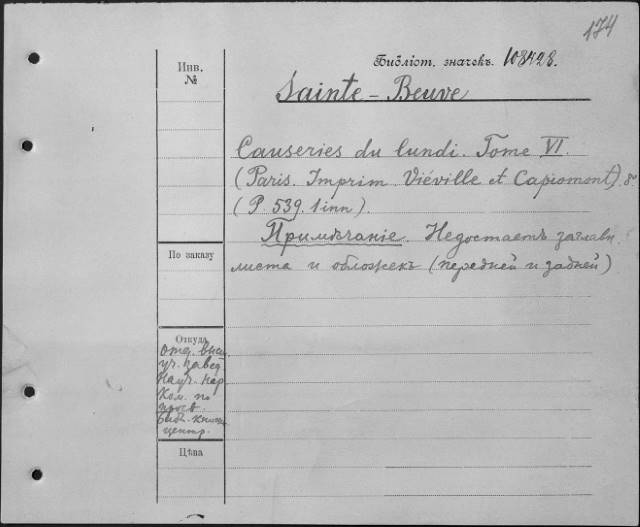 174
Инв. №
Библіот. значекъ. 108428.
Sainte-Beuve
Causeries du lundi. Tome VI.
(Paris. Imprim Viéville et Capiomont). 8º
(P. 539. 1 inn).
Примѣчаніе. Недостаетъ заглавн.
листа и обложекъ (передней и задней)
По заказу
Откуда
Отд. высш.
уч. завед
Науч. Нар
Ком. по
просв.
Библ. книжн.
центр.
Цѣна